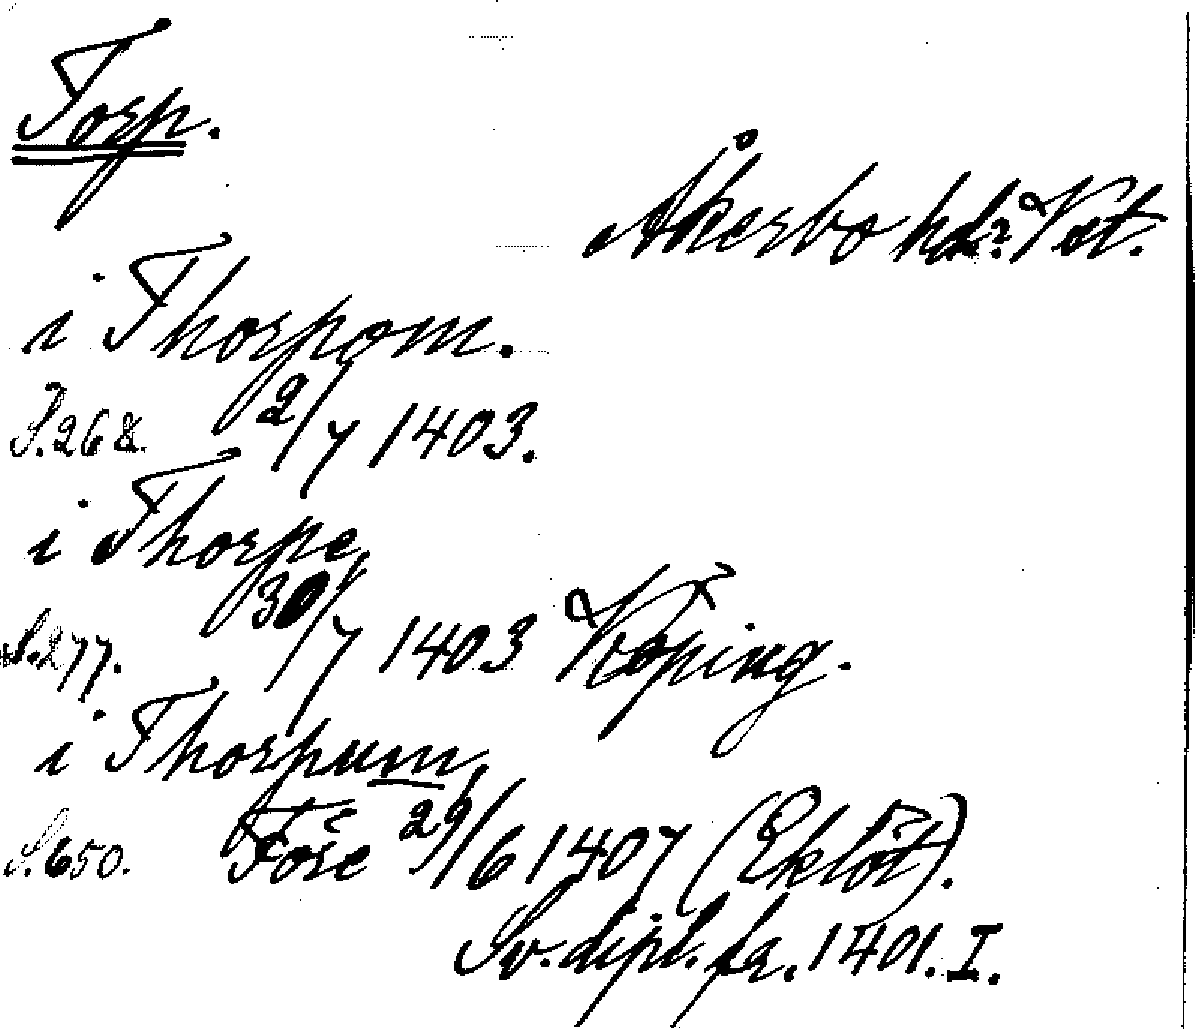 Torp.
Åkerbo hd. Vst.
i Thorpom.
S. 268. 2/7 1403.
i Thorpe,
S. 277. 30/7 1403 Köping.
i Thorpum,
S. 650. 29/6 1407 (Eklöt).
Sv. dipl. fr. 1401. I.